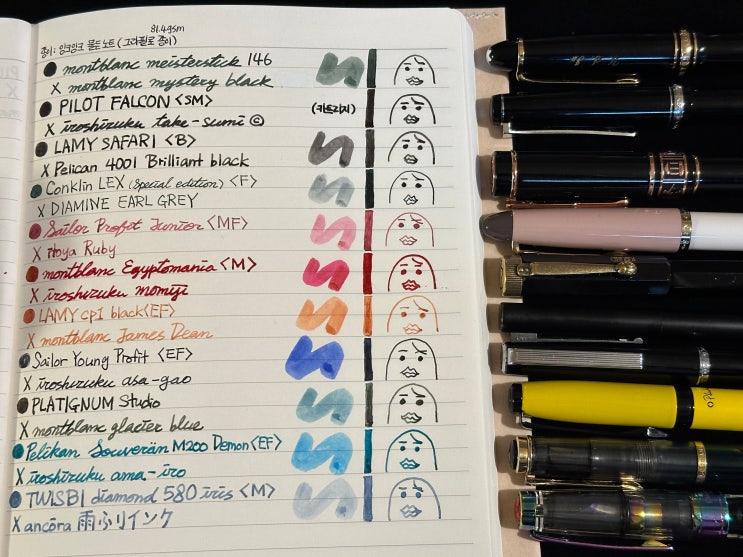 81.4gsm
종이: 잉크잉크 몰튼 노트 (그라필로 종이)
montblanc meisterstick 146
X montblanc mystery black
PILOT FALCON <SM> (카트리지)
X iroshizuku take-sumi ©
LAMY SAFARI <B>
X Pelican 4001 Brilliant black
Conklin LEX (Special edition) <F>
X DIAMINE EARL GREY
Sailor Profit Junior <MF>
X Hoya Ruby
montblanc Egyptomania <M>
X iroshizuku momiji
LAMY cp1 black <EF>
X montblanc James Dean
Sailor Young Profit <EF>
X iroshizuku asa-gao
PLATIGNUM Studio
X montblanc glacier blue
Pelikan Souverän M200 Demon <EF>
X iroshizuku ama-iro
TWISBI diamond 580 iris <M>
X ancora 雨ふりインク